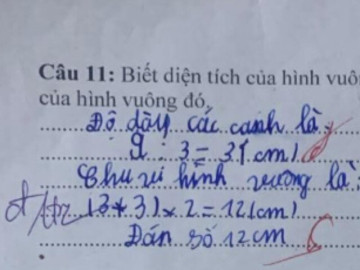 Câu 11: Biết diện tích của hình vuô
của hình vuông đó.
Độ dây các cạnh là
9 : 3 = 3 (cm)
Chu vi hình vuông là
(3 + 3) × 2 = 12 (cm)
Đấn số 12 cm